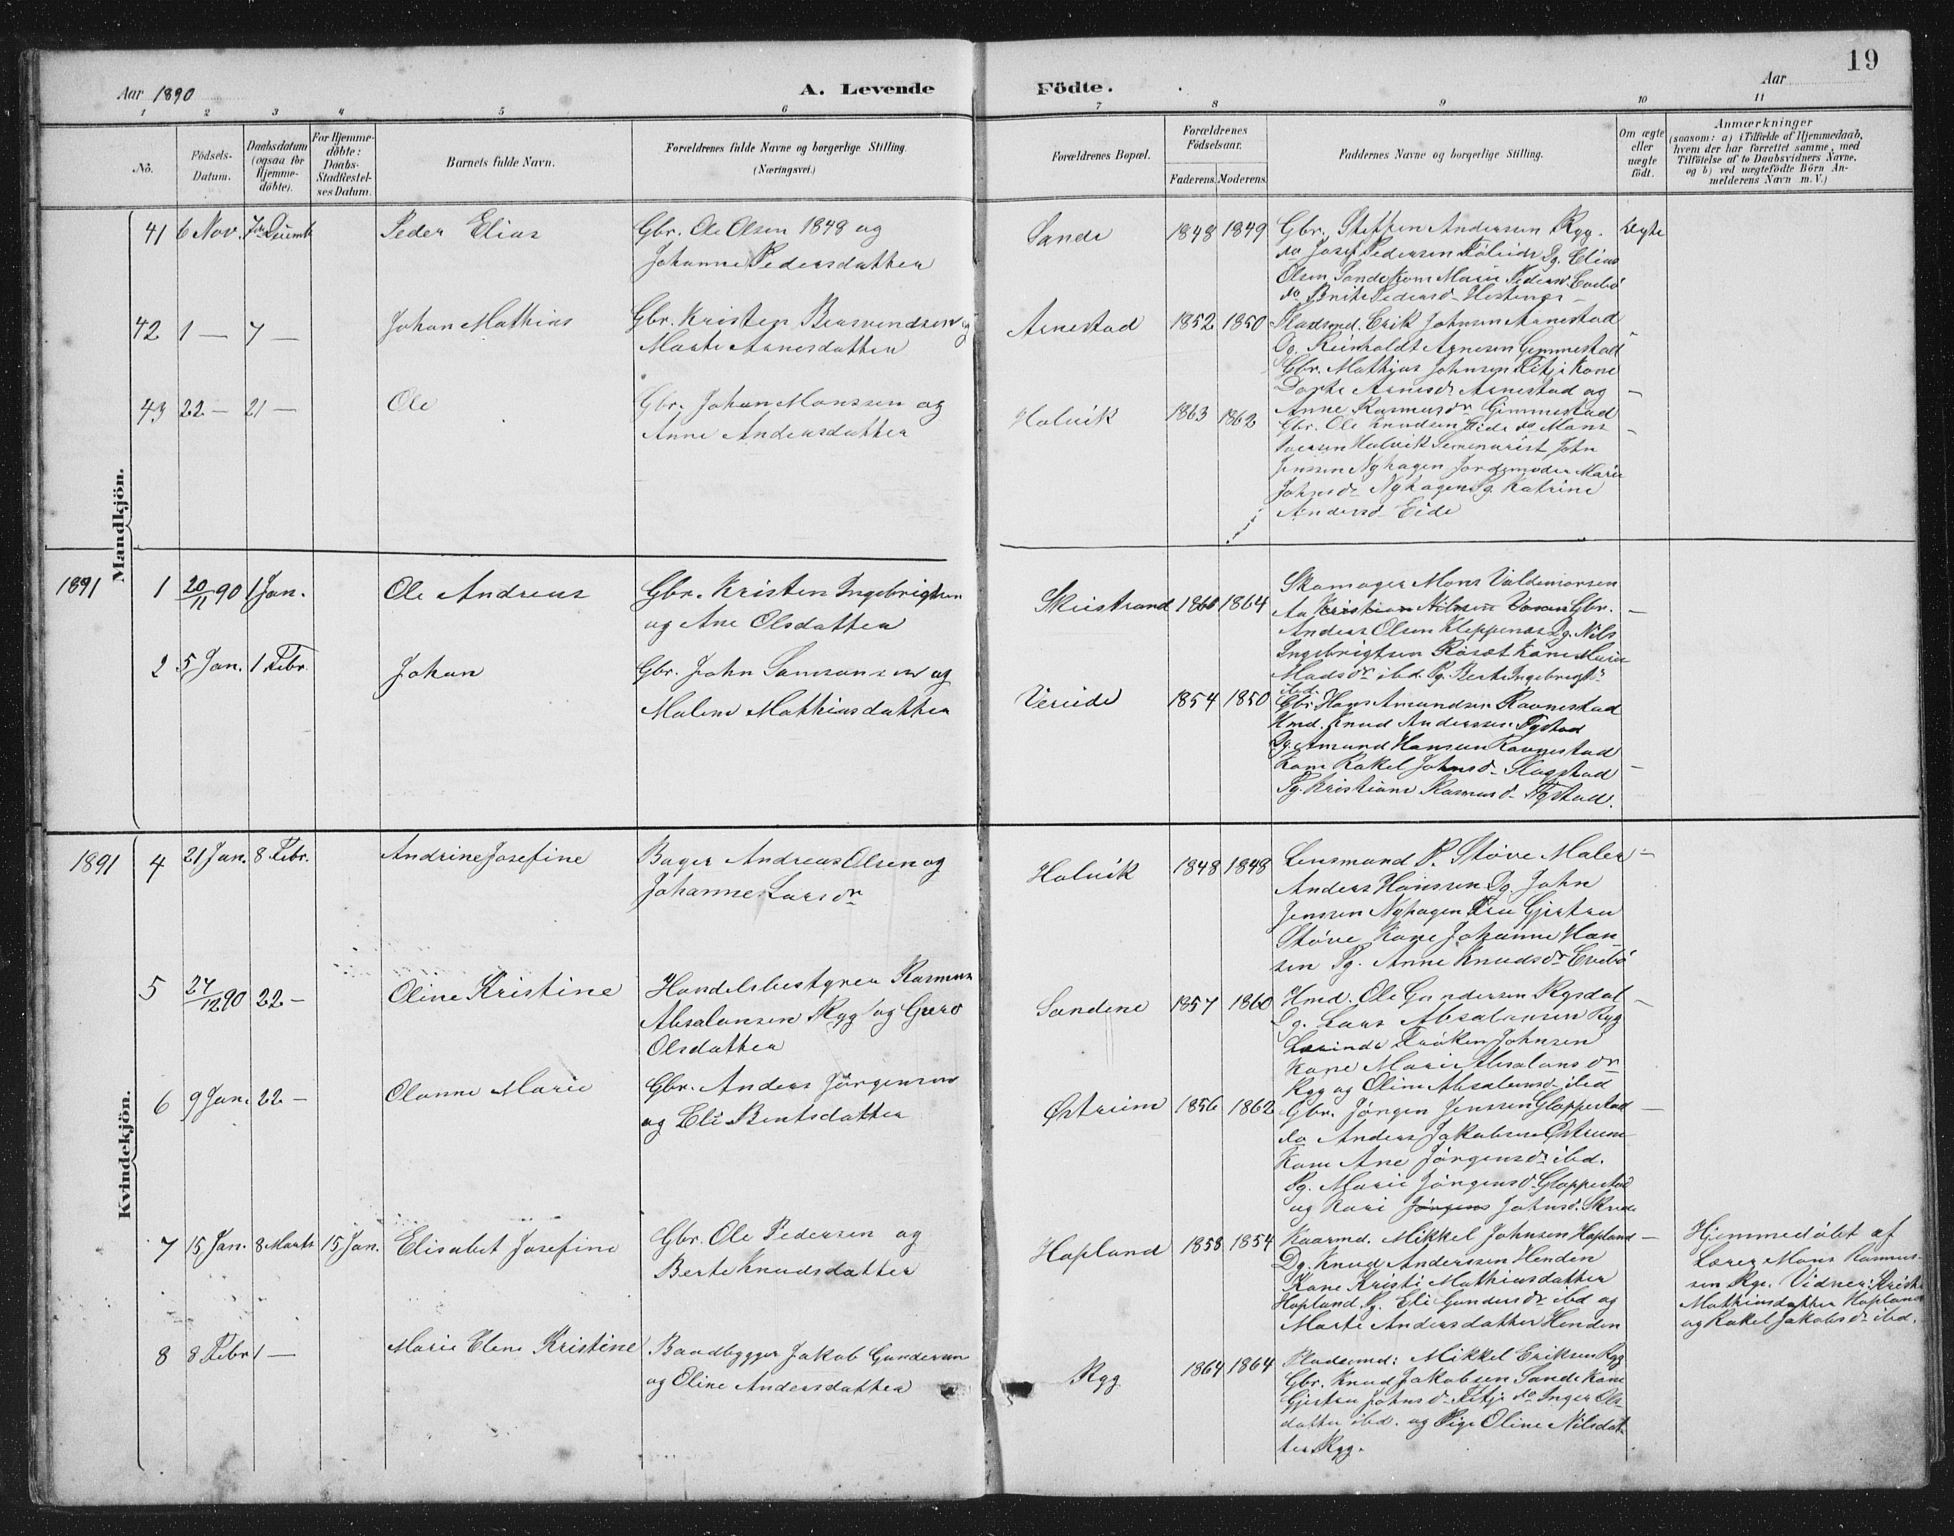 19
Aar 1890
A. Levende
Födte.
Aar
1 2 3 4 5 6 7 8 9 10 11
No.
Födsels-Datum.
Daabsdatum (ogsaa for Hjemme-döbte).
For Hjemme-döbte: Daabs-Stadfæstel-ses Datum.
Barnets fulde Navn.
Forældrenes fulde Navne og borgerlige Stilling. (Næringsvei.)
Forældrenes Bopæl.
Forældrenes Födselsaar.
Faderens. Moderens.
Faddernes Navne og borgerlige Stilling.
Om ægte eller uægte födt.
Anmærkninger
(saasom: a) i Tilfælde af Hjemmedaab,
hvem der har forrettet samme, med
Tilföielse af to Daabsvidners Navne.
og b) ved uægtefödte Börn An-
melderens Navn m. V.)
Mandkjön.
41 6 Nov. Peder Elias
Gbr. Ole Olsen 1848 og
Johanne Pedersdatter
Sande 1848 1849
Gbr. Steffen Andersen Ryg.
do Josef Pedersen Pg. Elias
Olsen Sande Kone Marie Pedersd. Evebö
do Brite Pedersd. Hestenes
Ægte
42 1 — 7 — Johan Mathias
Gbr. Kristen Bersvendsen og
Marte Arnesdatter
Arnestad 1852 1850
Pladsmd. Erik Johnsen Arnestad
Reinholdt Arnesen Gimmestad
Gbr. Mathias Johnsen Fitje Kone
Dorte Arnesdr Arnestad og
Anne Rasmusdr Gimmestad
43 22 — 21 — Ole
Gbr. Johan Monssen og
Anne Andersdatter
Holvik 1863 1862
Gbr. Ole Knudsen Eide do Mons
Iversen Holvik Seminarist John
Jenssen Nyhagen Jordemoder Marie
Johnsdr Nyhagen Pg. Katrine
Andersd. Eide
1891
1 20/11 90 1 Jan. Ole Andreas
Gbr. Kristen Ingebrigtsen
og Ane Olsdatter
Skeistrand 1860 1864
Skomager Mons Valdemarsen
Aa Kristian Nilsen Gbr.
Anders Olsen Kleppenes Dg. Nils
Ingebrigtsen Röset Kone Marie
Madsdr ibd. Pg. Berte Ingebrigtsd
ibd.
2 5 Jan. 1 Febr. Johan
Gbr. John Samsonsen og
Malene Mathiasdatter
Vereide 1854 1850
Gbr. Hans Amundsen Ravnestad
Hmd. Knud Anderssen Tystad
Dg. Amund Hansen Ravnestad
Kone Rakel Johnsd. Slagstad
Pg. Kristiane Rasmusd. Tystad.
Kvindekjön.
1891
4 21 Jan. 8 Febr. Andrine Josefine
Bager Andreas Olsen og
Johanne Larsdr
Holvik 1848 1848
Lensmand P. Støve Maler
Anders Hanssen Dg. John
Jenssen Nyhagen Fru Gjertru
Støve Kone Johanne Han-
sen Pg. Anne Knudsdr Evebö
5 27/12 90 22 — Oline Kristine
Handelsbestyrer Rasmus
Absalonsen Ryg og Guro
Olsdatter
Sandene 1857 1860
Hmd. Ole Gundersen Rygsdal
Dg. Lars Absalonsen Ryg
Lærinde Frøken Johnsen
Kone Marie Absalonsdr
Ryg og Oline Absalonsd. ibd
6 9 Jan. 22 — Olanne Marie
Gbr. Anders Jörgensen
og Eli Bentsdatter
Østrium 1856 1862
Gbr. Jörgen Jenssen Gloppestad
do Anders Jakobsen Østrum
Kone Ane Jörgensdr ibd.
Pg. Marie Jörgensd. Gloppestad
og Kari Jörgens Johnsd.
7 15 Jan. 8 Marts 15 Jan. Elisabet Josefine
Gbr. Ole Pedersen og
Berte Knudsdatter
Hopland 1858 1854
Kaarmd. Mikkel Johnsen Hopland
Dg. Knud Anderssen Henden
Kone Kristi Mathiasdatter
Hopland, Pg. Eli Gundersdr ibd og
Marte Andersdatter Henden
Hjemmedöbt af
Lærer Mons Rasmus-
sen Ryg. Vidner: Kristi
Mathiasdatter Hopland
og Rakel Jakobsdr ibd.
8 8 Febr 1 — Marie Elene Kristine
Baadbygger Jakob Gundersen
og Oline Andersdatter
Ryg 1864 1864
Pladsmd: Mikkel Eriksen Ryg
Gbr. Knud Jakobsen Sande Kone
Gjertru Johnsd. Fitje do Inger Ols-
datter ibd. og Pige Oline Nilsdat-
ter Ryg.